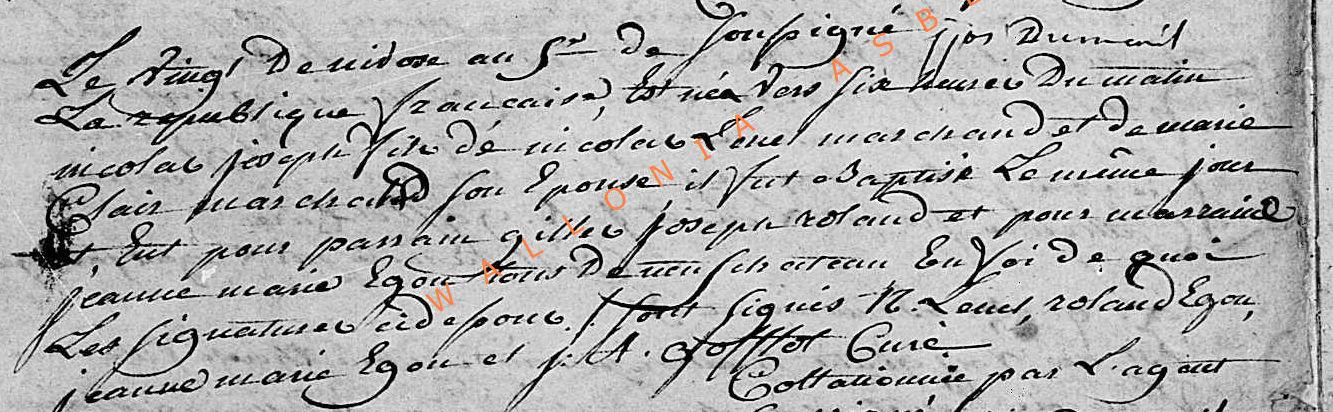 Soussigné jos Dumenil
Le vingt De nivose an 5e de
La republique française, Est née vers six heures Du matin
nicolas joseph fils dé nicolas Lenel marchand et de marie
Clair marchand son Epouse il fut Baptisé Le même jour
Et, Eut pour parrain gilles joseph roland et pour marraine
jeanne marie Egon tous De neufchateau En foi de quoi
Les signatures cidesous / sont signés N. Lenel, roland Egon,
jeanne marie Egon et j. A. Curé
Collationnée par L'agent
WALLONIA ASB